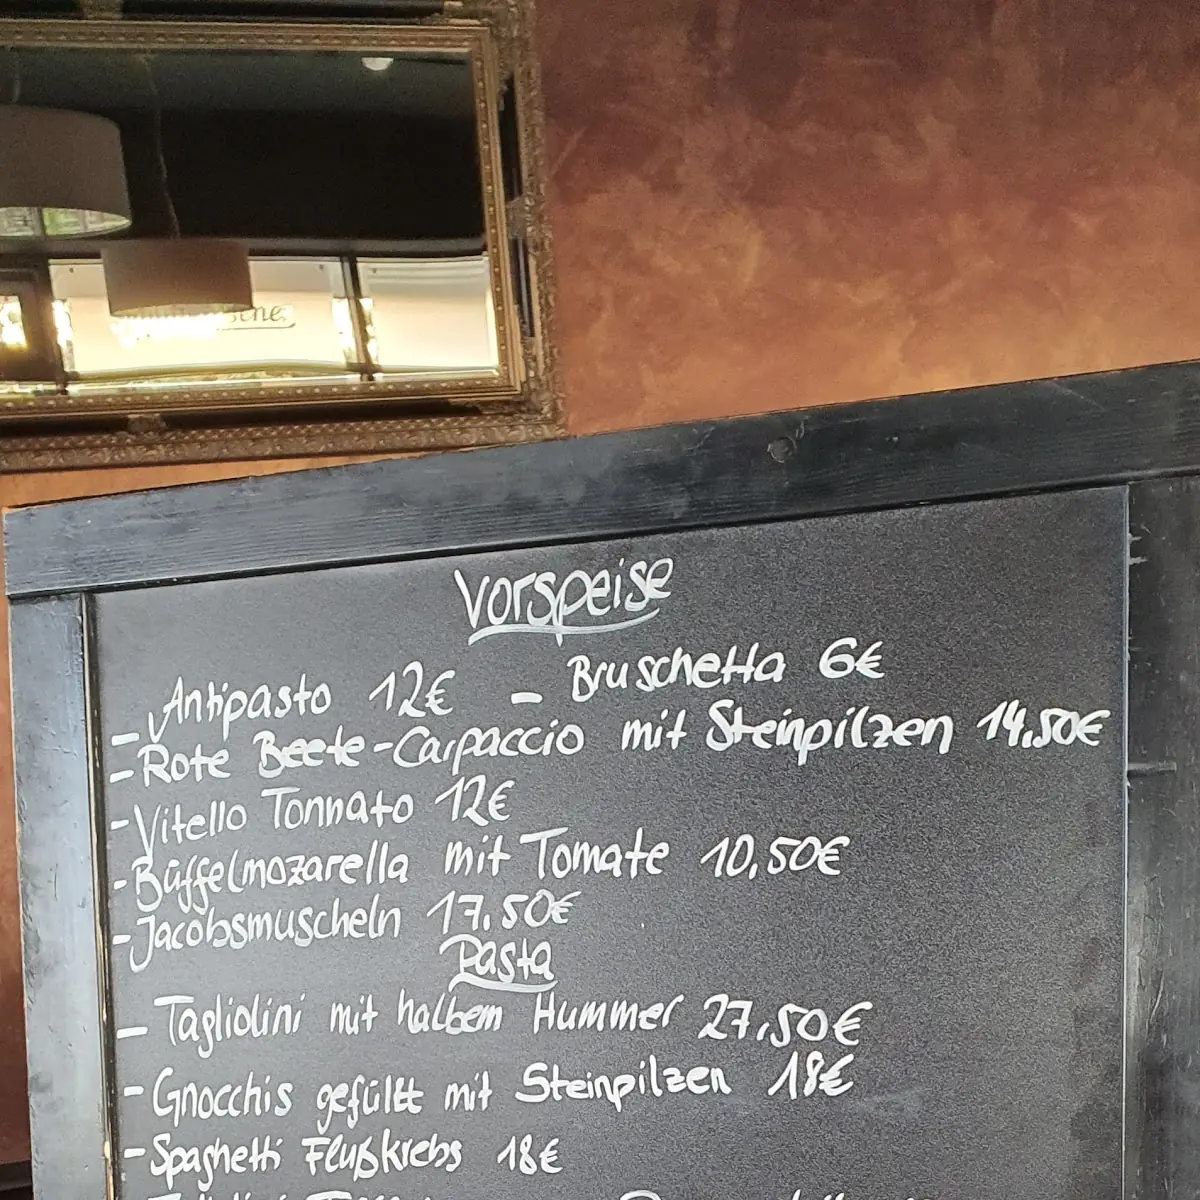 Vorspeise
- Antipasto 12€ - Bruschetta 6€
- Rote Beete-Carpaccio mit Steinpilzen 14,50€
- Vitello Tonnato 12€
- Büffelmozarella mit Tomate 10,50€
- Jacobsmuscheln 17,50€
Pasta
- Tagliolini mit halbem Hummer 27,50€
- Gnocchis gefüllt mit Steinpilzen 18€
- Spaghetti Flußkrebs 18€